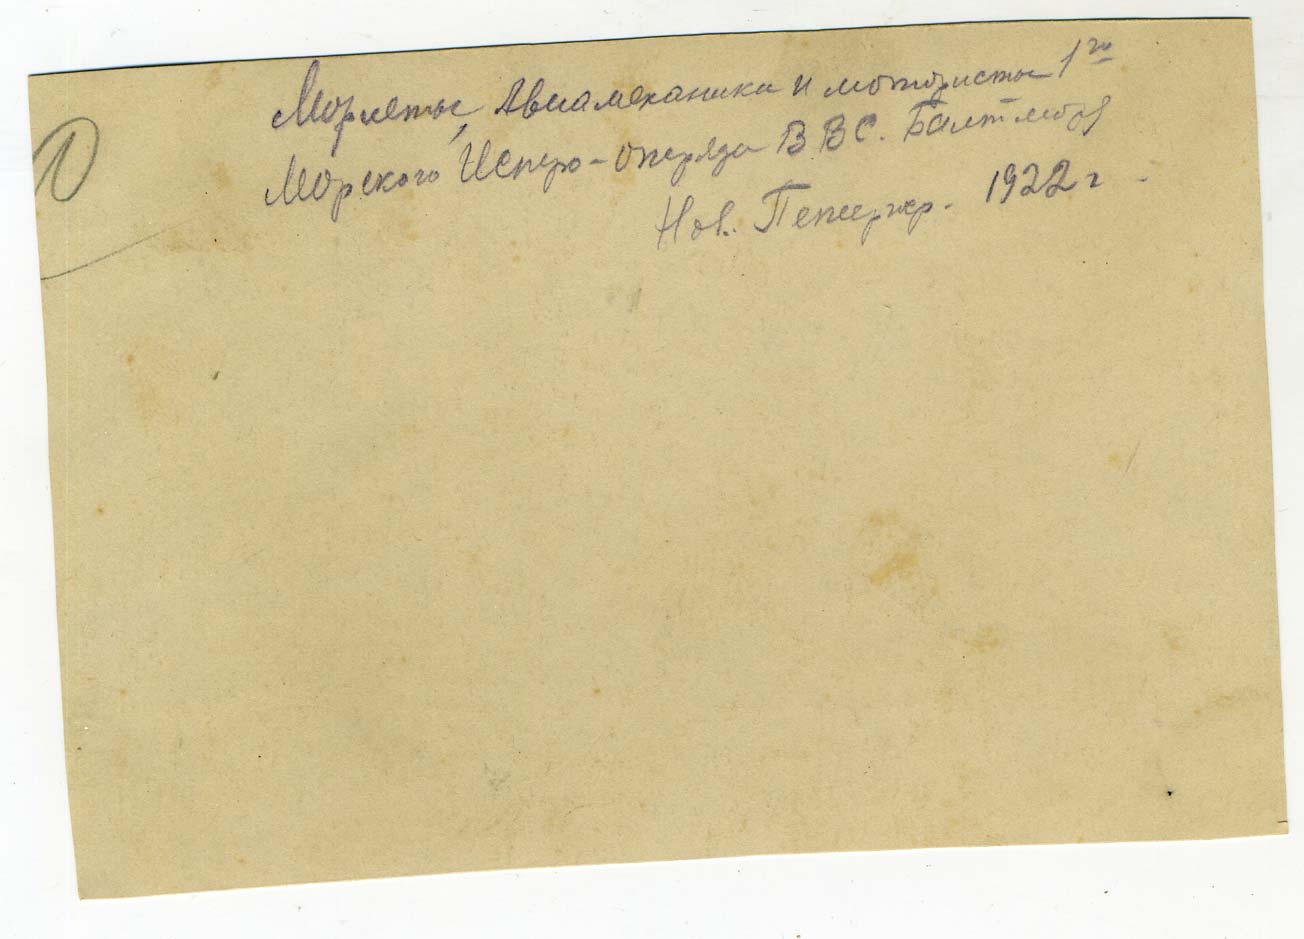 Морлеты, Авиамеханики и мотористы 1го
Морского Истро-отряда В.В.С. Балтморя
Нов. Петергр. 1922 г.